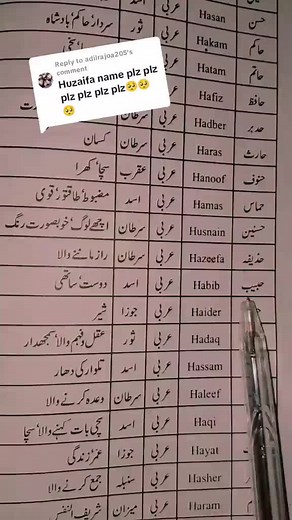 Reply to adilrajoa205's
comment
Huzaifa name plz plz
plz plz plz plz🥺🥺
🥺
حسن Hasan عربی ثور سردار' حاکم' بادشاہ
حاکم Hakam عربی
حاتم Hatam عربی
حافظ Hafiz عربی
حدبر Hadber عربی سرطان
حارث Haras عربی سرطان کسان
حنوف Hanoof عربی عقرب سچا' کھرا
حماس Hamas عربی اسد مضبوط' طاقتور' قوی
حسنین Husnain عربی سرطان اچھے لوگ' خوبصورت رنگ
حذیفہ Hazeefa عربی سرطان راز ماننے والا
حبیب Habib عربی اسد دوست' ساتھی
Haider عربی جوزا شیر
Hadaq عربی ثور عقل و فہم والا' سمجھدار
Hassam عربی اسد تلوار کی دھار
Haleef عربی سرطان وعدہ کرنے والا
Haqi عربی اسد سچی بات کہنے والا' سچا
Hayat عربی جوزا عمر' زندگی
Hasher عربی سنبلہ جمع کرنے والا
Haram عربی میزان شریف النفس